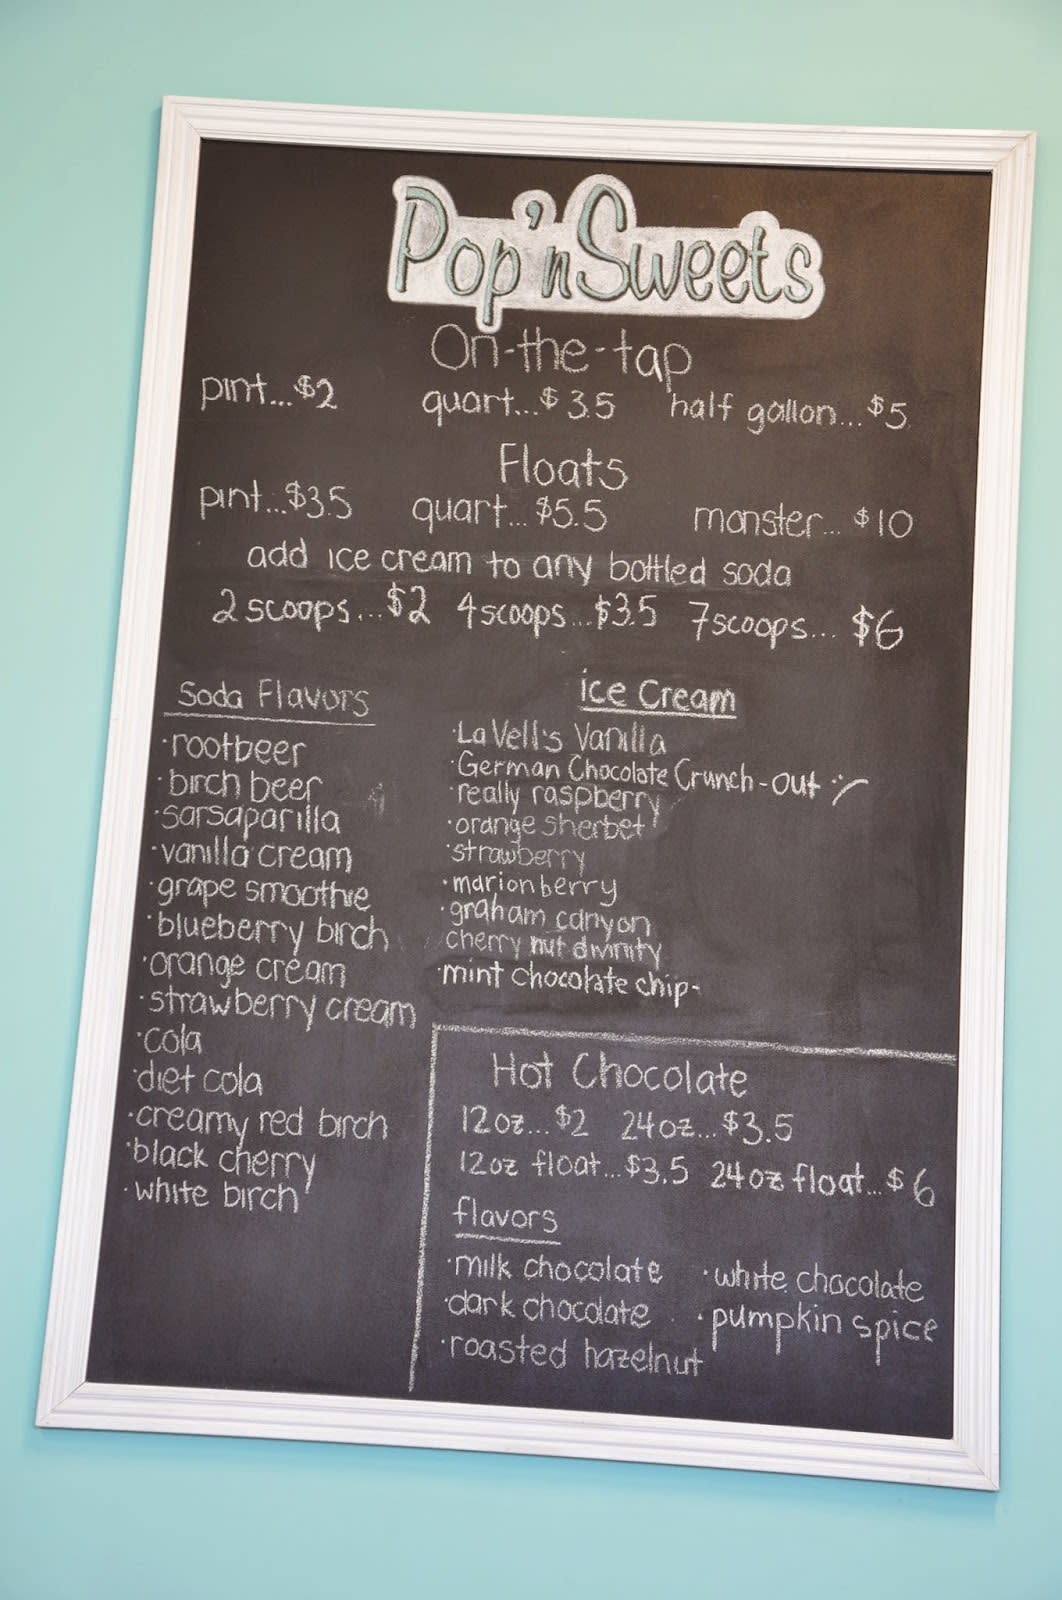 Pop'n Sweets
On-the-tap
pint...$2 quart...$3.5 half gallon...$5
Floats
pint...$3.5 quart...$5.5 monster...$10
add ice cream to any bottled soda
2 scoops...$2 4 scoops...$3.5 7 scoops...$6
Soda Flavors
·rootbeer
·birch beer
·sarsaparilla
·vanilla cream
·grape smoothie
·blueberry birch
·orange cream
·strawberry cream
·cola
·diet cola
·creamy red birch
·black cherry
·white birch
Ice Cream
·La Vell's Vanilla
·German Chocolate Crunch-out :(
·really raspberry
·orange sherbet
·strawberry
·marionberry
·graham canyon
cherry nut divinity
·mint chocolate chip-
Hot Chocolate
12oz...$2 24oz...$3.5
12oz float...$3.5 24oz float...$6
flavors
·milk chocolate ·white chocolate
·dark chocolate ·pumpkin spice
·roasted hazelnut